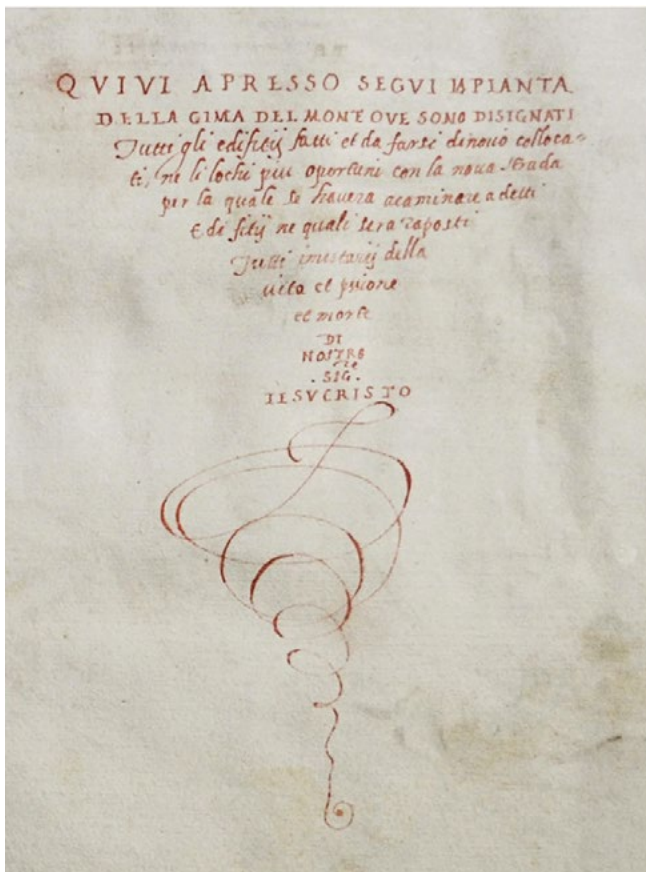 QVIVI APRESSO SEGVI LAPIANTA
DELLA CIMA DEL MONTE OVE SONO DISIGNATI
Tutti gli edifitij fatti et da farsi dinovo colloca-
ti, ne li lochi piu oportuni con la nova strada
per la quale se havera acaminare a detti
Edifitij ne quali sera raposti
Tutti i misterij della
vita et psione
et morte
DI
NOSTRO
SIG.re
IESVCRISTO